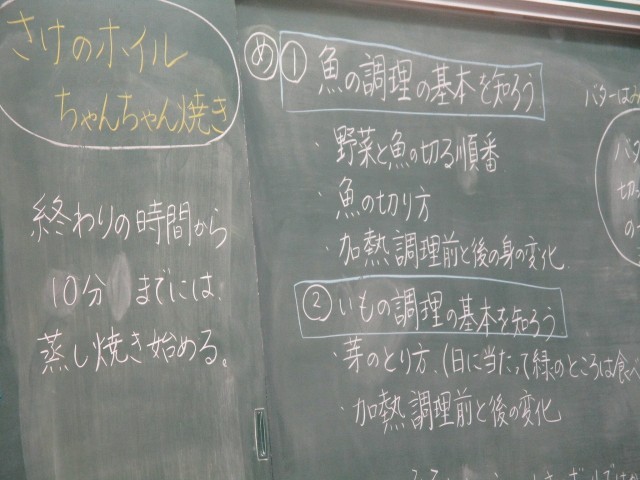 さけのホイル
ちゃんちゃん焼き
終わりの時間から
10分 までには、
蒸し焼き始める。
め ① 魚の調理の基本を知ろう
・野菜と魚の切る順番
・魚の切り方
・加熱調理前と後の身の変化
② いもの調理の基本を知ろう
・芽のとり方、(日に当たって緑のところは食べ
・加熱調理前と後の変化
バターは
バタ
切
の